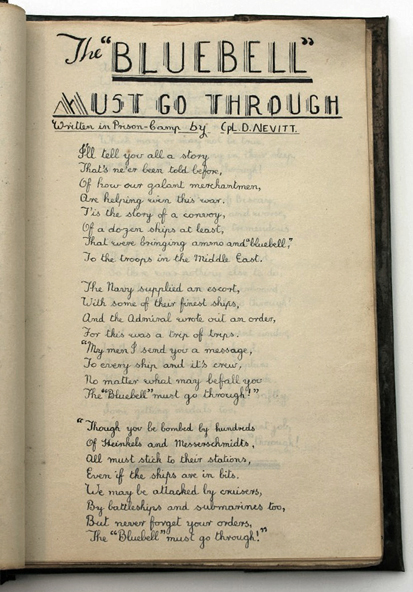 The "BLUEBELL"
MUST GO THROUGH
Written in Prison-Camp by Cpl. D. NEVITT.
I'll tell you all a story
That's ne'er been told before,
Of how our galant merchantmen,
Are helping win this war.
T'is the story of a convoy,
Of a dozen ships at least,
That were bringing ammo and "bluebell,"
To the troops in the Middle East.
The Navy supplied an escort,
With some of their finest ships,
And the Admiral wrote out an order,
For this was a trip of trips.
"My men I send you a message,
To every ship and it's crew,
No matter what may befall you
The "Bluebell" must go through!"
"Though you be bombed by hundreds
Of Heinkels and Messerschmidts,
All must stick to their stations,
Even if the ships are in bits.
We may be attacked by cruisers,
By battleships and submarines too,
But never forget your orders,
The "Bluebell" must go through!"